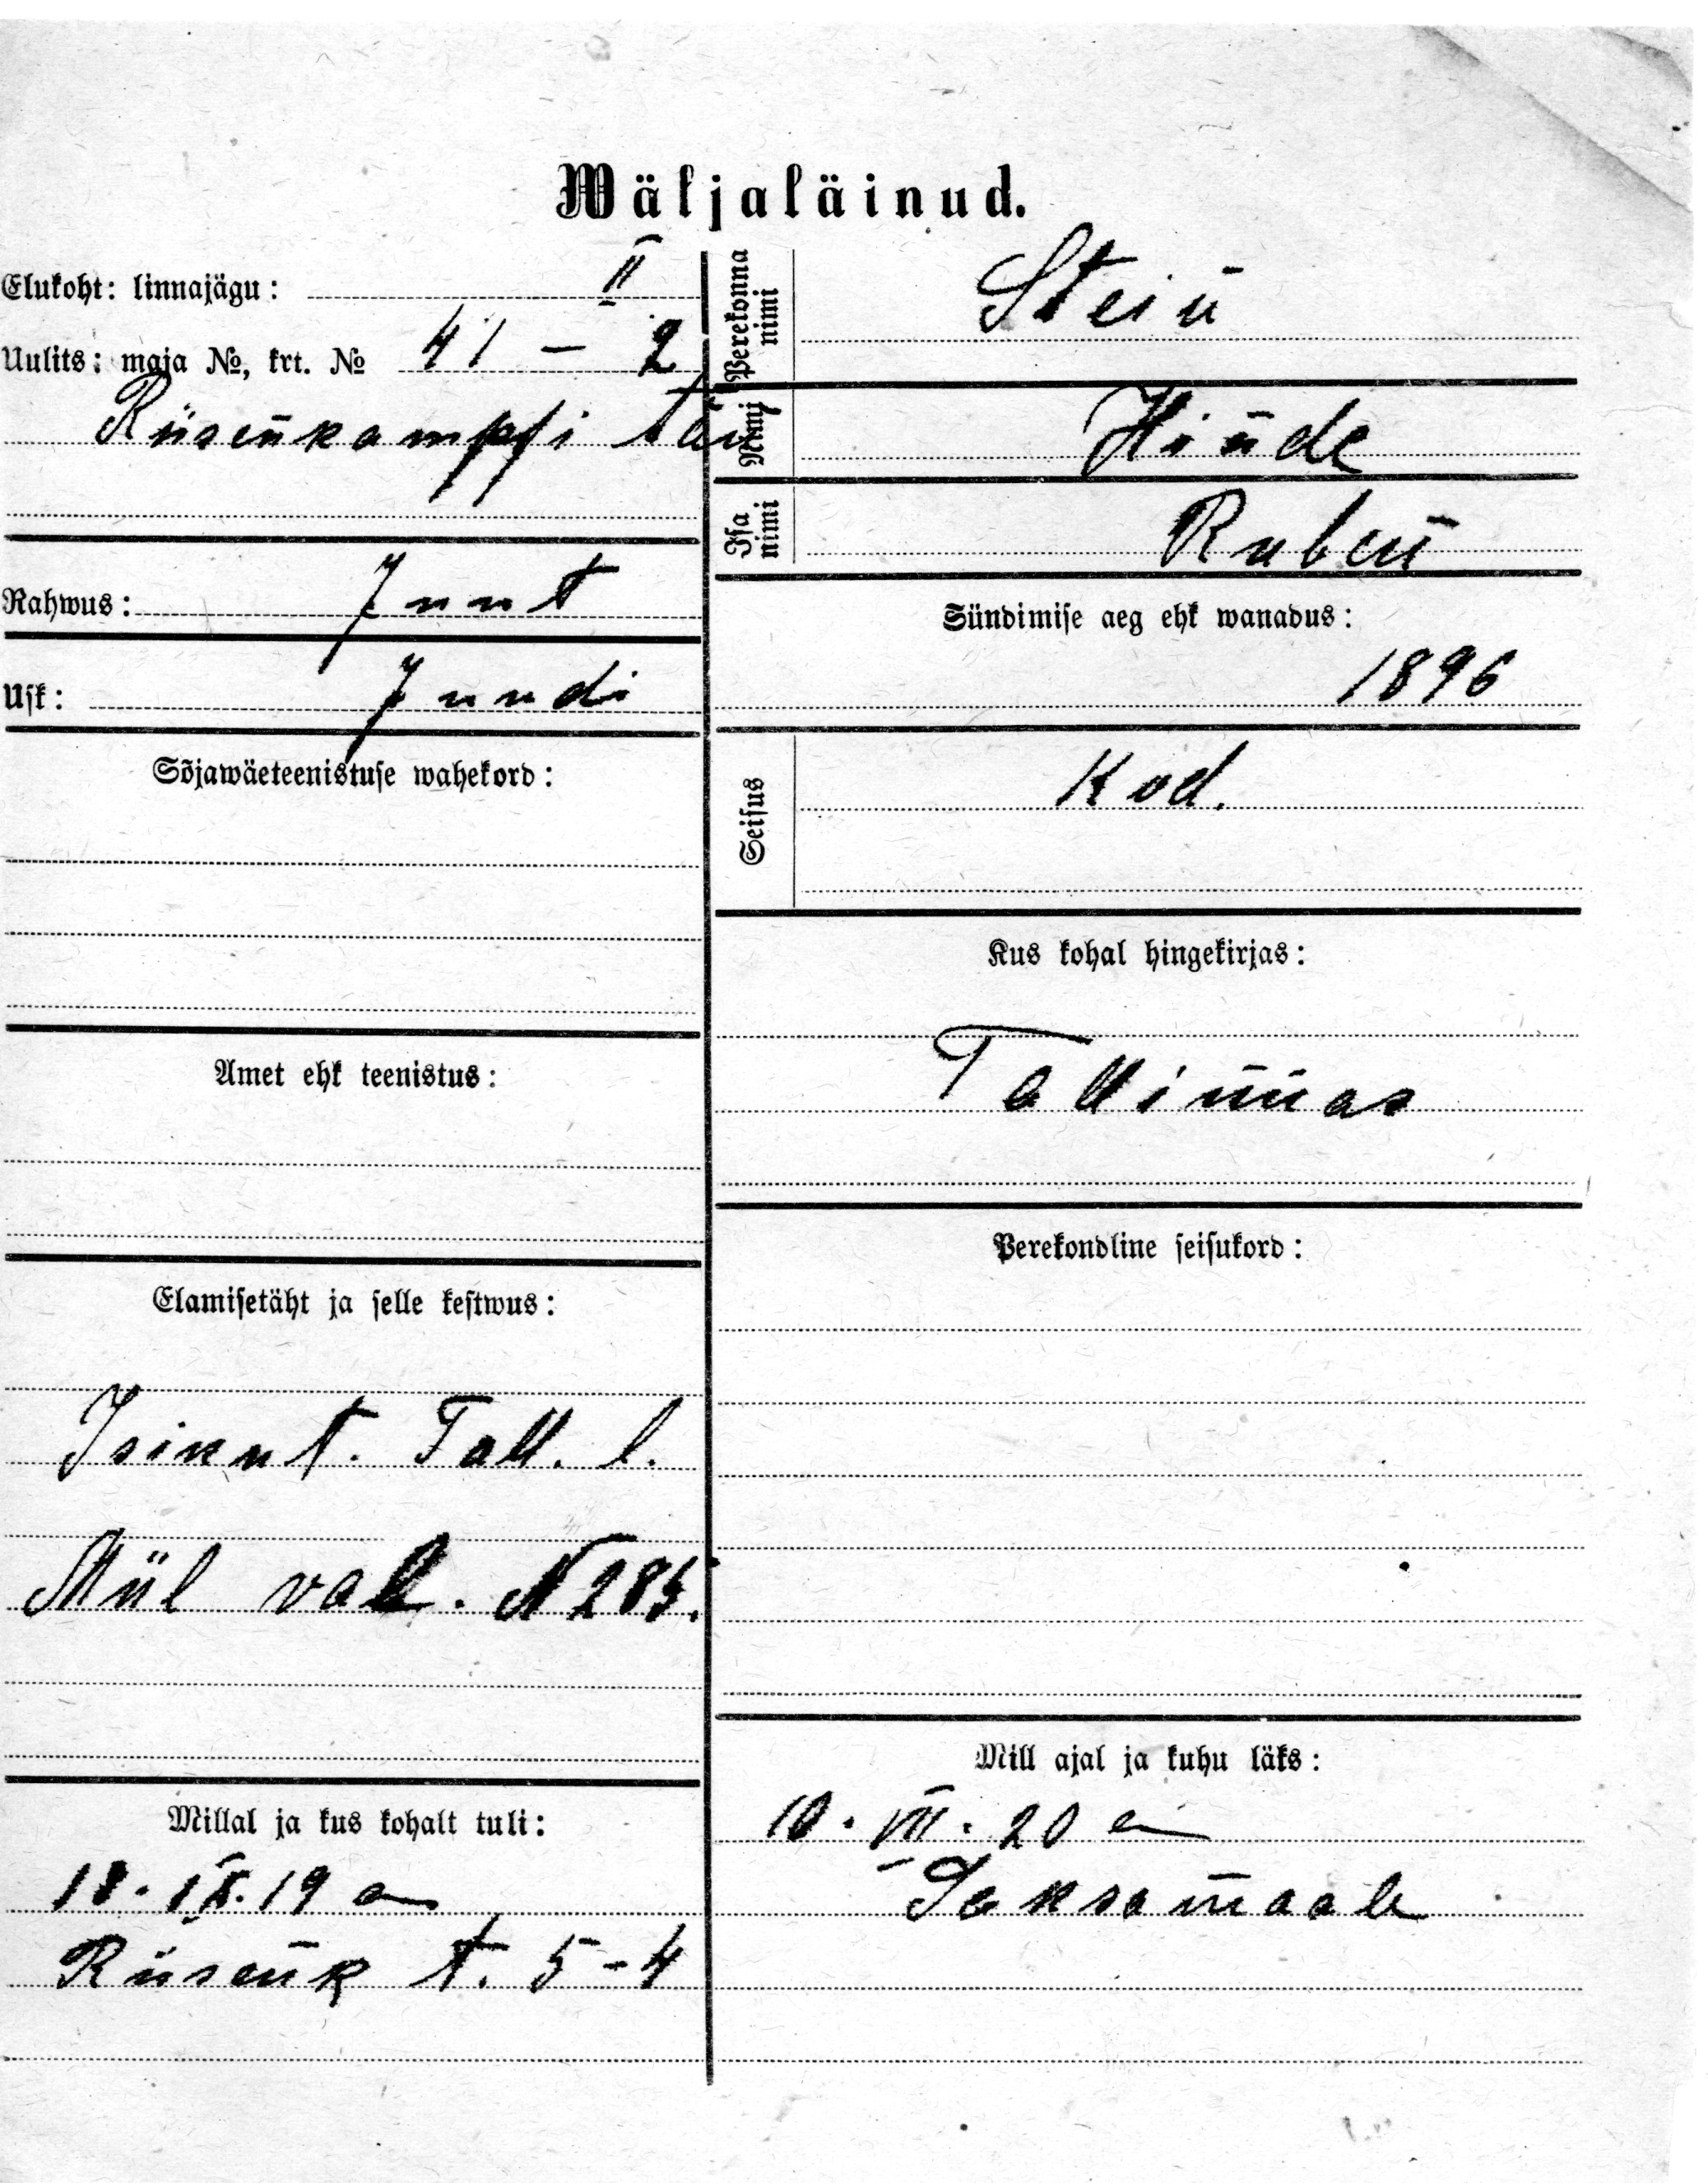 Wäljaläinud.
Elukoht: linnajägu: II
Uulits: maja №, krt. № 41 – 2
Riisenkampfi tän
Rahwus: Juut
Usk: Juudi
Sõjawäeteenistuse wahekord:
Amet ehk teenistus:
Elamisetäht ja selle kestwus:
Isikut. Tall. l.
Miil val. N 285.
Millal ja kus kohalt tuli:
18. IX. 19 a
Riisenk t. 5-4
Perekonna nimi Stein
Nimi Hinde
Isa nimi Ruben
Sündimise aeg ehk wanadus:
1896
Seisus Kod.
Kus kohal hingekirjas:
Tallinnas
Perekondline seisukord:
Mill ajal ja kuhu läks:
10. VII. 20 a
Saksamaale